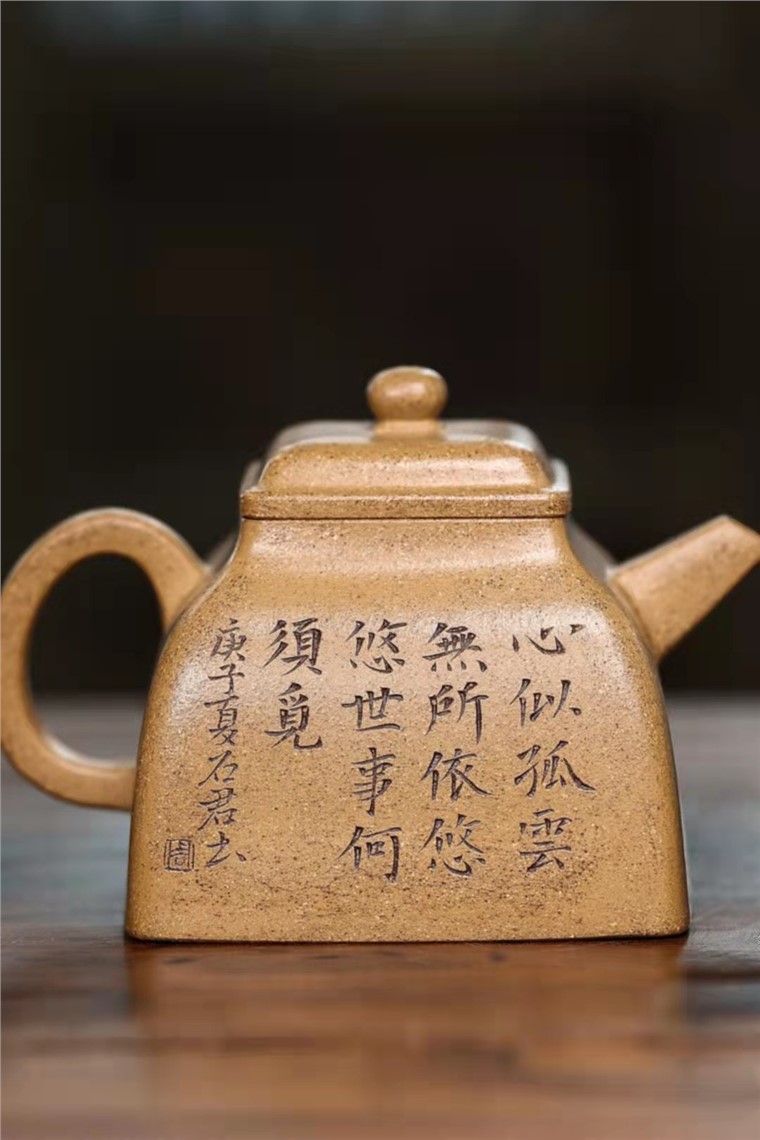 心似孤雲
無所依悠
悠世事何
須覓
庚子夏石君士